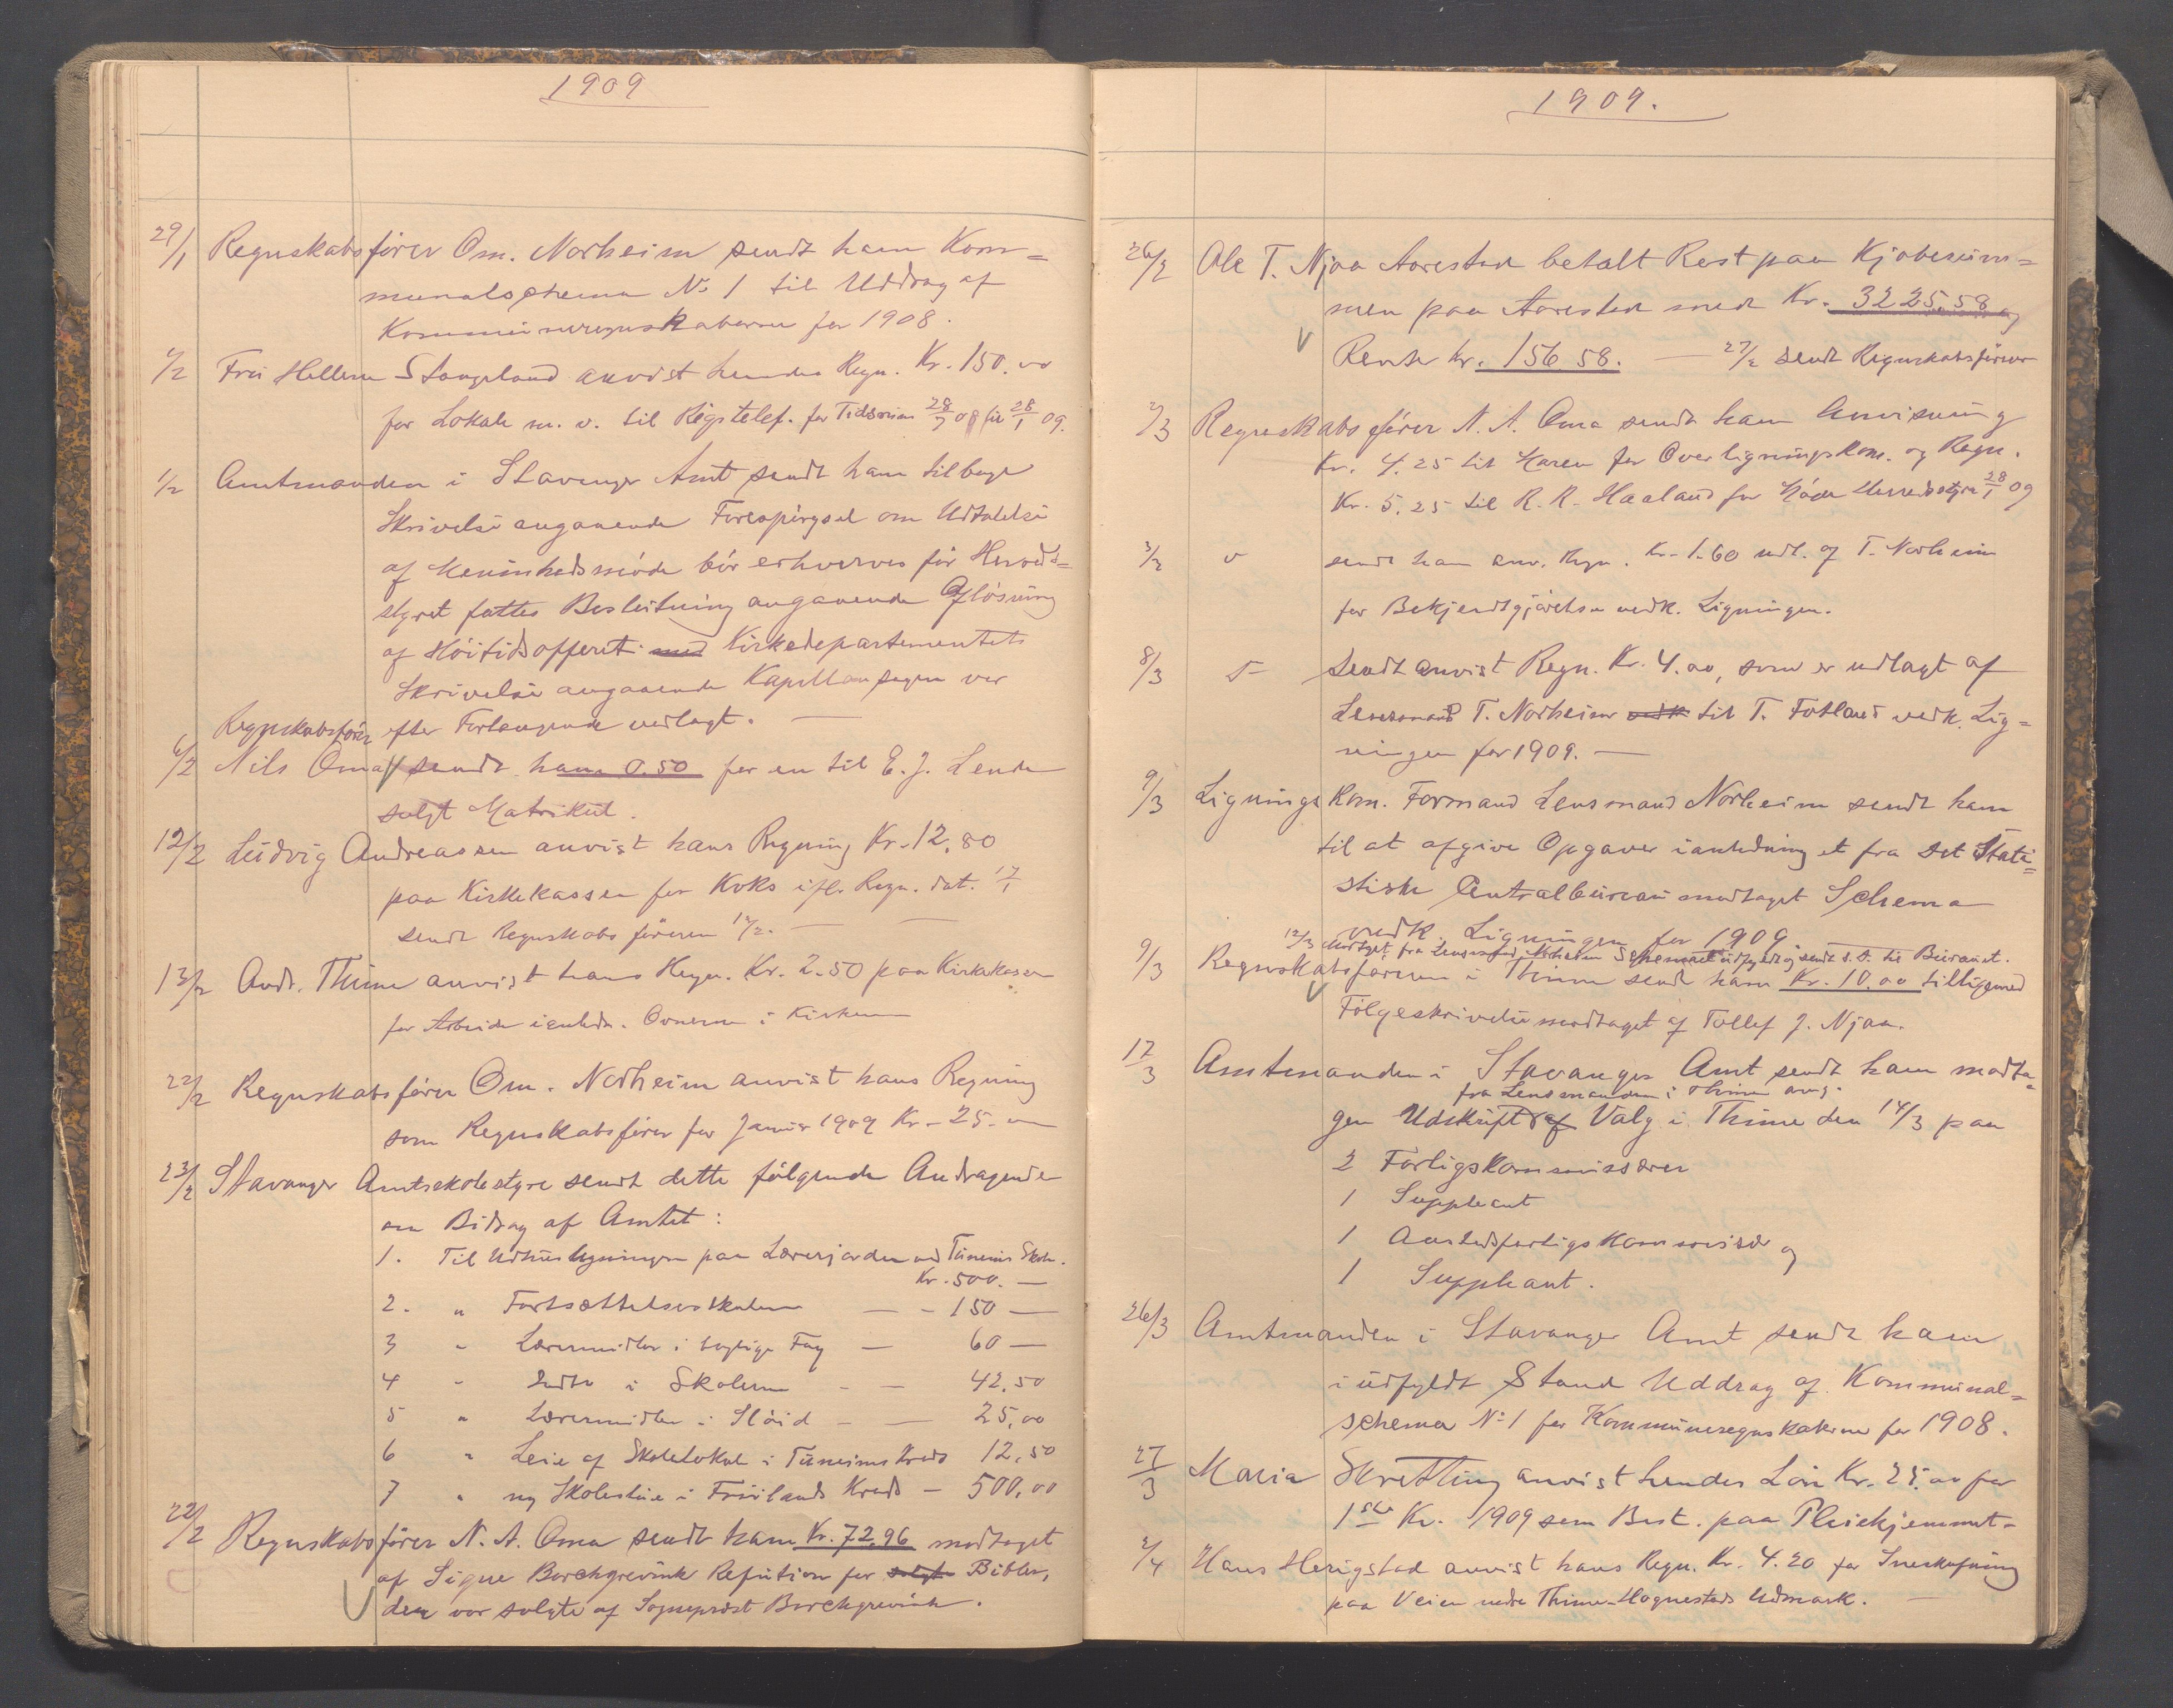 1909
29/1 Regnskabsfører Om. Norheim sendt ham Kom=
munalschema No 1 til Uddrag af
Kommuneregnskaberne for 1908.
1/2 Fru Hellesn Stangeland anvist hendes Regn. Kr. 150.00
for Lokale m. v. til Rigstelef. for Tidsrum 28/7 08 til 28/1 09.
1/2 Amtmanden i Stavanger Amt sendt ham tilbage
Skrivelse angaaende Forespørgsel om Udtalelse
af Menighedsmøde bør erhverves før Herreds=
styret fatter Beslutning angaaende Afløsning
af Høitidsofferet. med Kirkedepartementets
Skrivelse angaaende Kapellansagen var
efter Forlangende vedlagt. —
6/2 Regnskabsfører Nils Oma sendt ham 0.50 for en til E. J. Lende
solgt Matrikul.
12/2 Ludvig Andreassen anvist hans Regning Kr. 12.80
paa Kirkekassen for Koks ifl. Regn. dat. 17/1
sendt Regnskabsføreren 12/2. —
13/2 Andr. Thime anvist hans Regn. Kr. 2.50 paa Kirkekassen
for Arbeide i anledn. Ovnerne i Kirken
22/2 Regnskabsfører Om. Norheim anvist hans Regning
som Regnskabsfører for Januar 1909 Kr. 25.00
23/2 Stavanger Amtsskolestyre sendt dette følgende Andragender
om Bidrag af Amtet:
1. Til Udhusbygningen paa Lærerjorden ved Tuneims Skole.
Kr. 500. —
2. " Fortsættelsesskolen — - 150 —
3 " Læremidler i boglige Fag — 60 —
4 " Do i Skolerne - — 42.50
5 " Læremidler i Sløid - — 25.00
6 " Leie af Skolelokal i Tuneims Kreds 12.50
7 " ny Skolestue i Frøilands Kreds — 500.00
22/2 Regnskabsfører N. A. Oma sendt ham Kr. 72.96 modtaget
af Signe Borchgrevink Refution for solgte Bibler,
der var solgte af Sogneprest Borchgrevink.
1909.
26/2 Ole T. Njaa Aarestad betalt Rest paa Kjøbesum=
men paa Aarestad med Kr. 3225.58 og
Rente kr. 156 58. — 27/2 sendt Regnskabsfører
2/3 Regnskabsfører N. A. Oma sendt ham Anvisning
Kr. 4.25 til Karen for Overligningskom. og Regn.
Kr. 5.25 til R. R. Haaland for Herredsstyre 28/1 09
3/3 " sendt ham anv. Regn. Kr. 1.60 udl. af T. Norheim
for Bekjendtgjørelse vedk. Ligningen.
8/3 " Sendt anvist Regn. Kr. 4.00, som er udlagt af
Lensmand T. Norheim vedk til T. Fotland vedk. Lig=
ningen for 1909. —
9/3 Lignings Kom. Formand Lensmand Norheim sendt ham
til at afgive Opgaver i anledning et fra det Stati=
stiske Centralbureau modtaget Schema
vedk. Ligningen for 1909
12/3 Modtaget fra Lensmand Norheim Schemaet udfyldt og sendt s. D. til Bureauet.
9/3 Regnskabsføreren i Thime sendt ham Kr. 10.00 tilligemed
Følgeskrivelse modtaget af Tollef J. Njaa.
17/3 Amtmanden i Stavanger Amt sendt ham modta=
fra Lensmanden i Thime ang.
gen Udskrift af Valg i Thime den 14/3 paa
2 Forligskommissærer
1 Suppleant
1 Aastedsforligskommissær og
1 Suppleant.
26/3 Amtmanden i Stavanger Amt sendt ham
i udfyldt Stand Uddrag af Kommunal=
schema No 1 for Kommuneregnskaberne for 1908.
27/3 Maria Skretting anvist hendes Løn Kr. 25.00 for
1ste Kv. 1909 som Best. paa Pleiehjemmet.
2/4 Hans Herigstad anvist hans Regn. Kr. 4.20 for Sneskufning
paa Veien nedre Thime-Hognestads Udmark. —